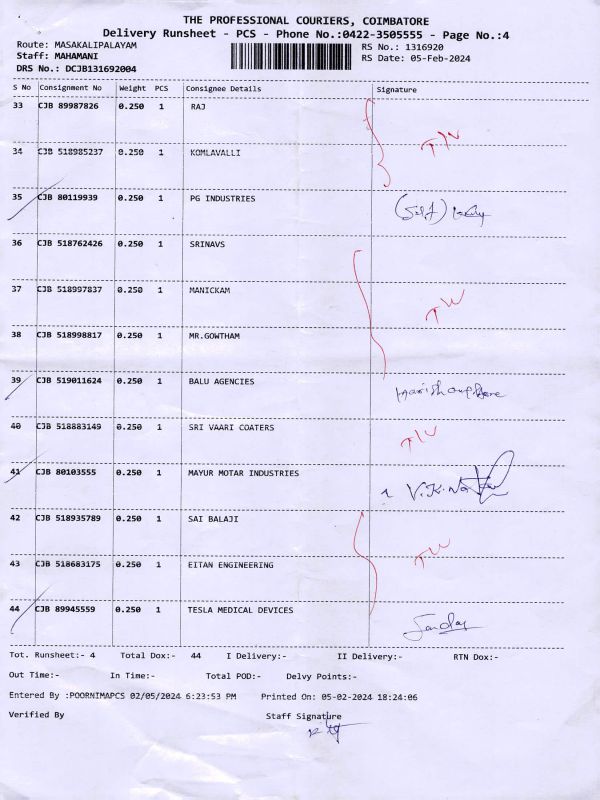 THE PROFESSIONAL COURIERS, COIMBATORE
Delivery Runsheet - PCS - Phone No.:0422-3505555 - Page No.:4
Route: MASAKALIPALAYAM RS No.: 1316920
Staff: MAHAMANI RS Date: 05-Feb-2024
DRS No.: DCJB131692004
S No Consignment No Weight PCS Consignee Details Signature
33 CJB 89987826 0.250 1 RAJ
T/W
34 CJB 518985237 0.250 1 KOMLAVALLI
35 CJB 80119939 0.250 1 PG INDUSTRIES
36 CJB 518762426 0.250 1 SRINAVS
37 CJB 518997837 0.250 1 MANICKAM
T W
38 CJB 518998817 0.250 1 MR.GOWTHAM
39 CJB 519011624 0.250 1 BALU AGENCIES
40 CJB 518883149 0.250 1 SRI VAARI COATERS
T/W
41 CJB 80103555 0.250 1 MAYUR MOTAR INDUSTRIES
42 CJB 518935789 0.250 1 SAI BALAJI
43 CJB 518683175 0.250 1 EITAN ENGINEERING
T W
44 CJB 89945559 0.250 1 TESLA MEDICAL DEVICES
Tot. Runsheet:- 4 Total Dox:- 44 I Delivery:- II Delivery:- RTN Dox:-
Out Time:- In Time:- Total POD:- Delvy Points:-
Entered By :POORNIMAPCS 02/05/2024 6:23:53 PM Printed On: 05-02-2024 18:24:06
Verified By Staff Signature